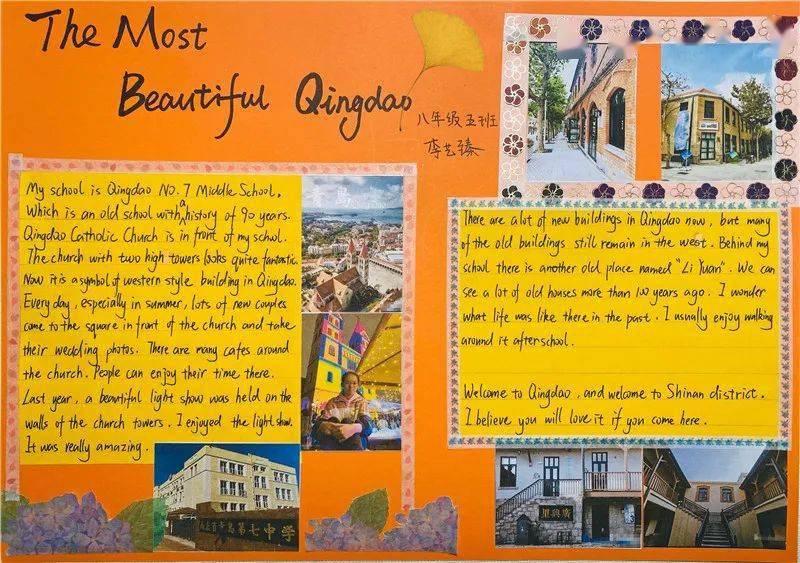 The Most
Beautiful Qingdao
八年级五班
李艺臻
My school is Qingdao No. 7 Middle School.
Which is an old school with a history of 90 years.
Qingdao Catholic Church is in front of my school.
The church with two high towers looks quite fantastic.
Now it is a symbol of western style building in Qingdao.
Every day, especially in summer, lots of new couples
come to the square in front of the church and take
their wedding photos. There are many cafes around
the church. People can enjoy their time there.
Last year, a beautiful light show was held on the
walls of the church towers. I enjoyed the light show.
It was really amazing.
島
青島第七中学
There are a lot of new buildings in Qingdao now, but many
of the old buildings still remain in the west. Behind my
school there is another old place named "Li Yuan". We can
see a lot of old houses more than 100 years ago. I wonder
what life was like there in the past. I usually enjoy walking
around it after school.
Welcome to Qingdao, and welcome to Shinan district.
I believe you will love it if you come here.
里興廣